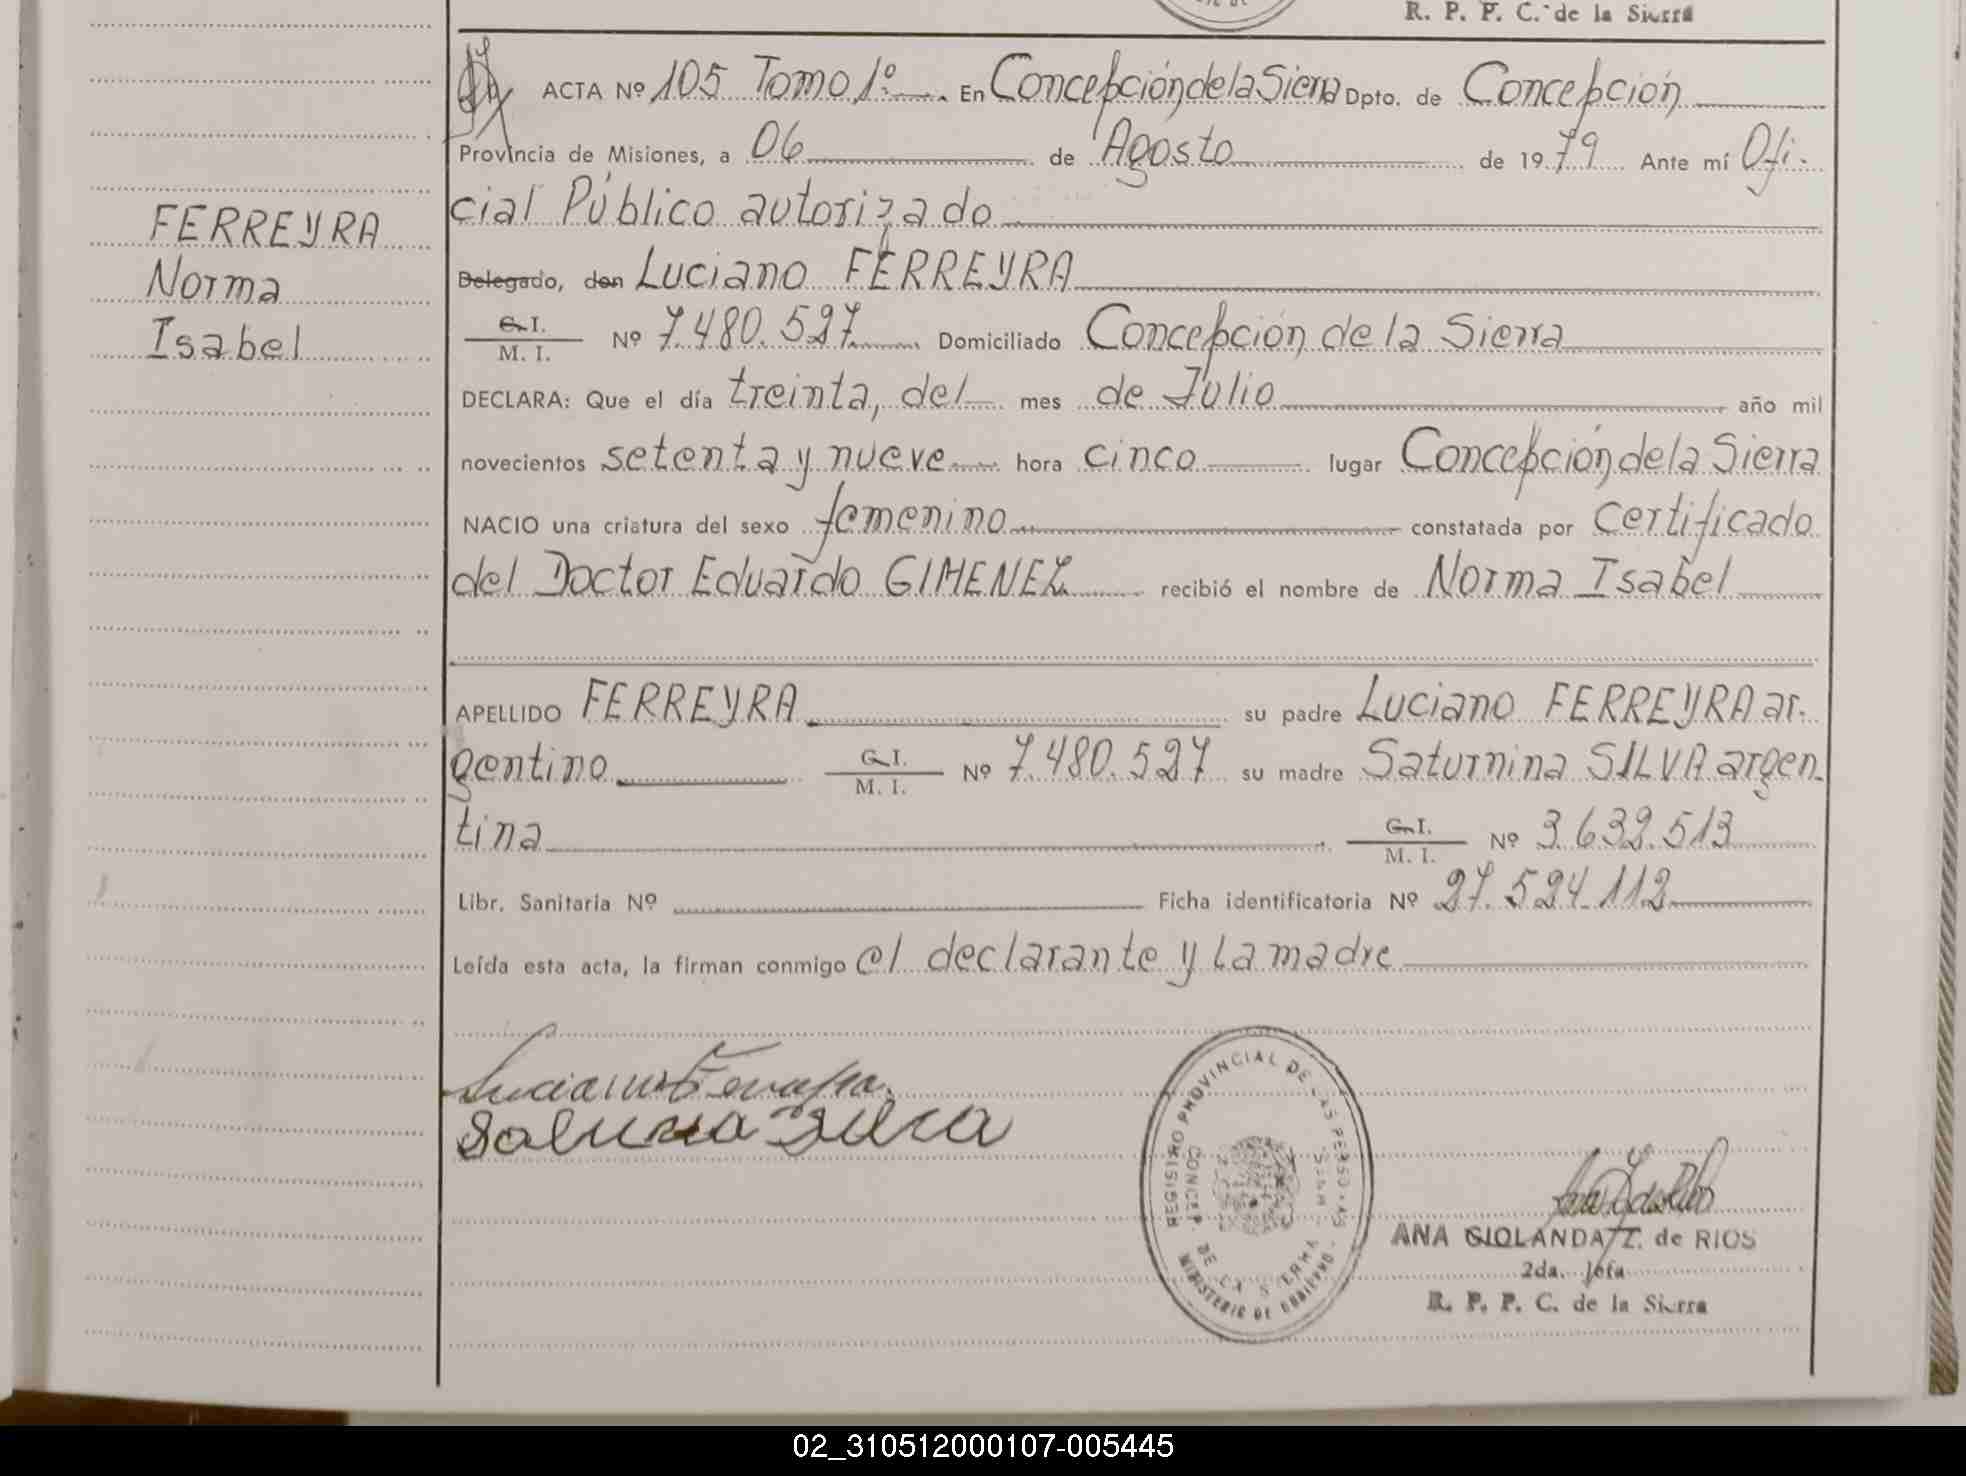 R. P. P. C. de la Sierra
ACTA Nº 105 Tomo 1º. En Concepción de la Sierra Dpto. de Concepción
Provincia de Misiones, a 06 de Agosto de 1979 Ante mí Ofi-
cial Público autorizado
FERREYRA
Norma
Isabel
Delegado, don Luciano FERREYRA
C. I.
M. I. Nº 7.480.527 Domiciliado Concepción de la Sierra
DECLARA: Que el día treinta, del mes de Julio año mil
novecientos setenta y nueve hora cinco lugar Concepción de la Sierra
NACIO una criatura del sexo femenino constatada por certificado
del Doctor Eduardo GIMENEZ recibió el nombre de Norma Isabel
APELLIDO FERREYRA su padre Luciano FERREYRA ar-
gentino C. I.
M. I. Nº 7.480.527 su madre Saturnina SILVA argen-
tina C. I.
M. I. Nº 3.632.513
Libr. Sanitaria Nº Ficha identificatoria Nº 27.524.112
Leída esta acta, la firman conmigo el declarante y la madre
Luciano Ferreyra
Saturnina Silva
REGISTRO PROVINCIAL DE LAS PERSONAS
CONCEP. DE LA SIERRA
MINISTERIO DE GOBIERNO
ANA GIOLANDA Z. de RIOS
2da. Jefa
R. P. P. C. de la Sierra
02_310512000107-005445